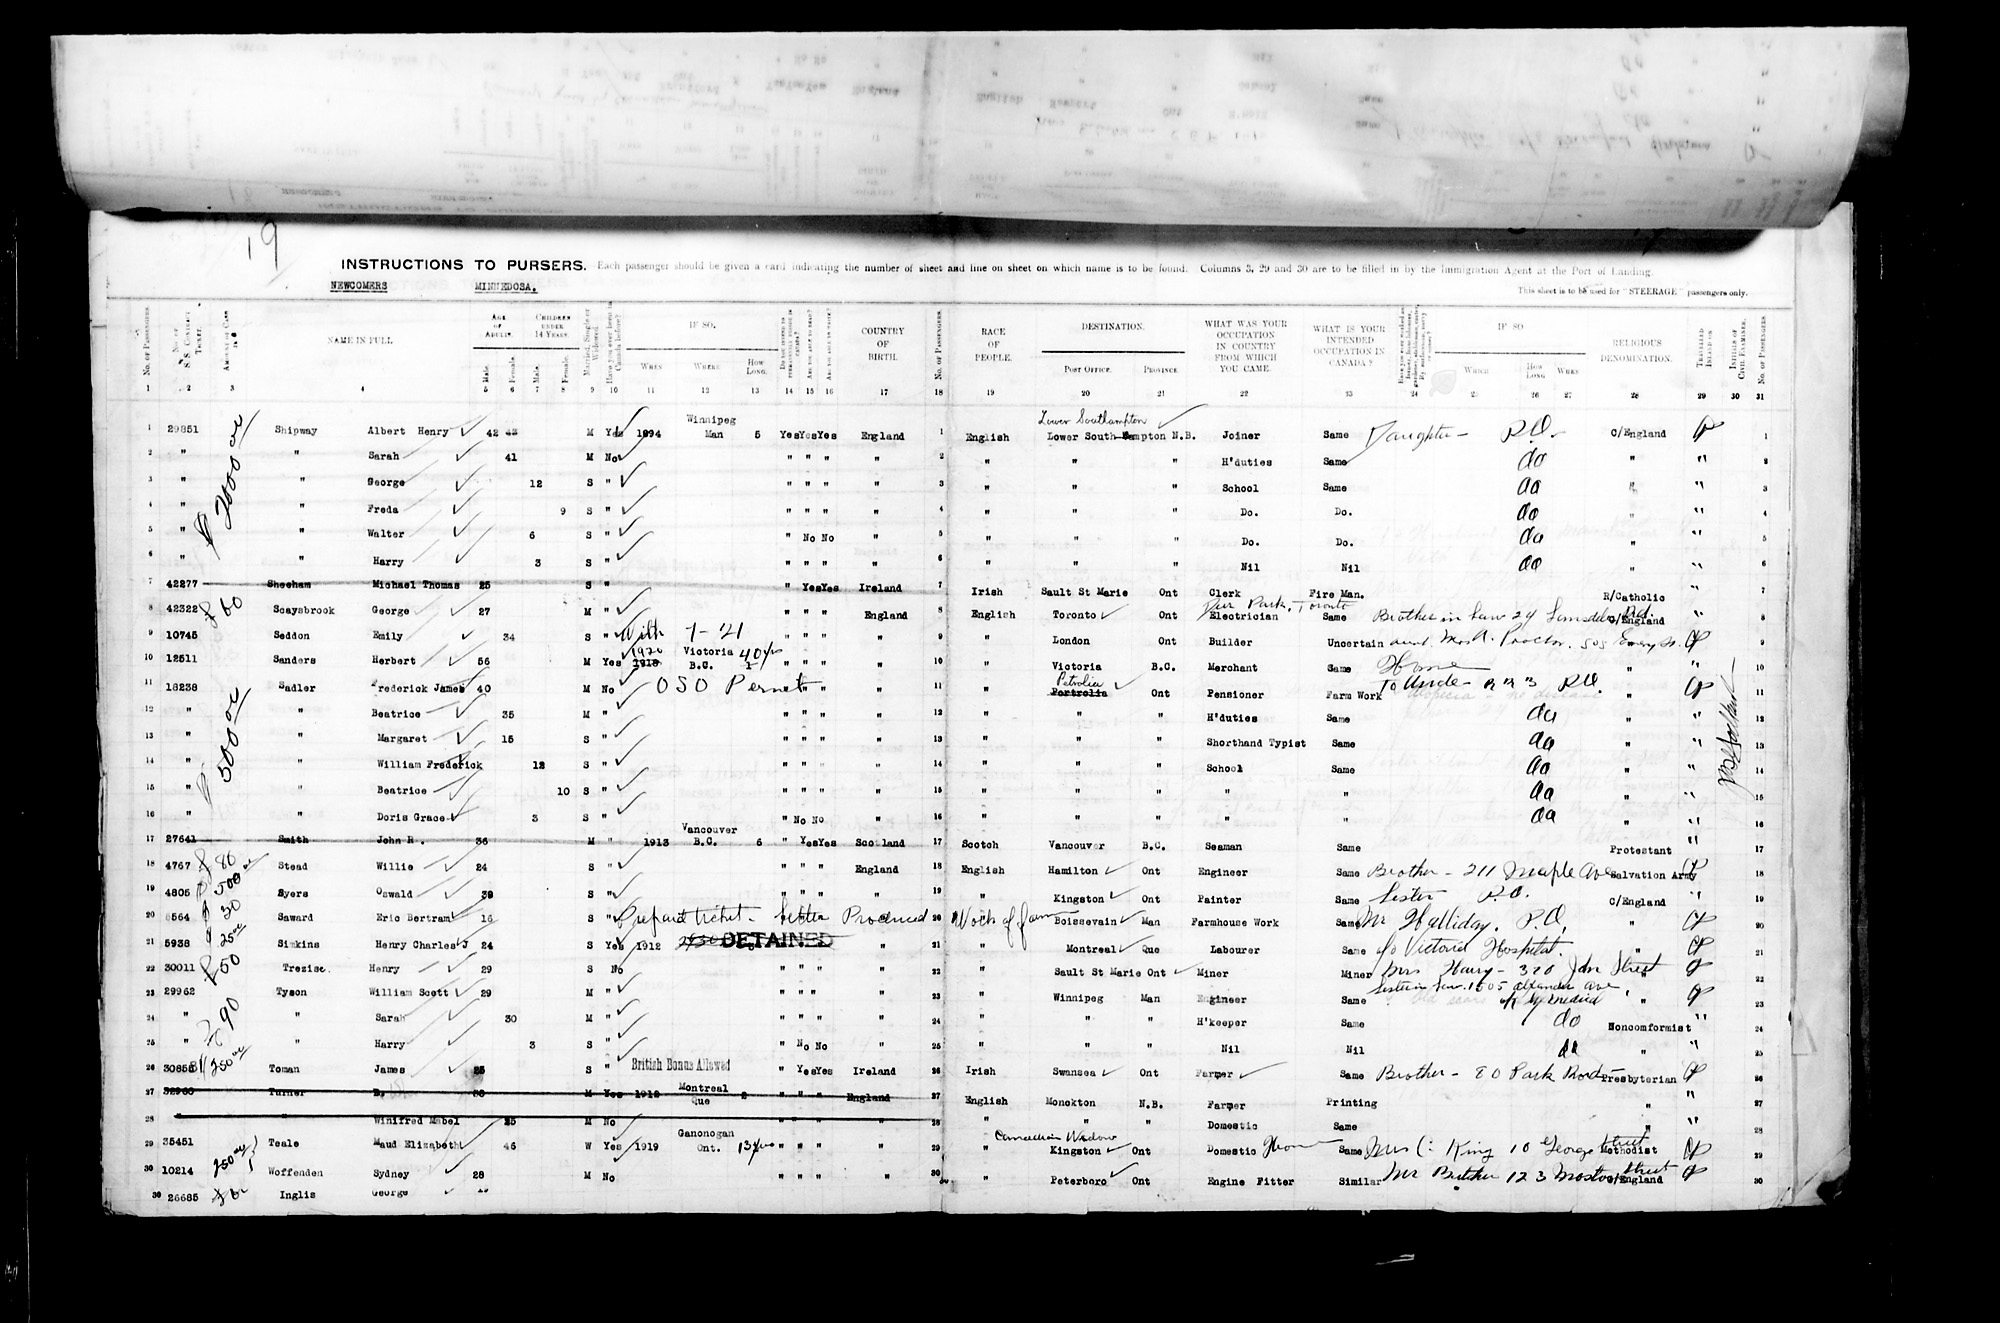 19
INSTRUCTIONS TO PURSERS. Each passenger should be given a card indicating the number of sheet and line on sheet on which name is to be found. Columns 3, 29 and 30 are to be filled in by the Immigration Agent at the Port of Landing.
NEWCOMERS MINNEDOSA. This sheet is to be used for "STEERAGE" passengers only.
No. of Passengers. No. of S.S. Contract Ticket. Amount of Cash NAME IN FULL AGE OF ADULT. Male. Female. CHILDREN UNDER 14 YEARS. Male. Female. Married, Single or Widowed. Have you ever been in Canada before? IF SO, WHEN WHERE HOW LONG. COUNTRY OF BIRTH. No. of Passengers. RACE OF PEOPLE. DESTINATION. POST OFFICE. PROVINCE WHAT WAS YOUR OCCUPATION IN COUNTRY FROM WHICH YOU CAME. WHAT IS YOUR INTENDED OCCUPATION IN CANADA? IF SO WHICH HOW LONG WHEN RELIGIOUS DENOMINATION. TRAVELLED INLAND ON INITIALS OF CIVIL EXAMINER. No. of Passengers.
1 2 3 4 5 6 7 8 9 10 11 12 13 14 15 16 17 18 19 20 21 22 23 24 25 26 27 28 29 30 31
1 29851 $2000 Shipway Albert Henry 42 M Yes 1894 Winnipeg Man 5 Yes Yes Yes England 1 English Lower Southampton Lower South Hampton N.B. Joiner Same Daughter - P.O. C/England CP 1
2 " " Sarah 41 M No " " " " 2 " " " H'duties Same do " " 2
3 " " George 12 S " " " " " 3 " " " School Same do " " 3
4 " " Freda 9 S " " " " " 4 " " " Do. Do. do " " 4
5 " " Walter 6 S " " No No " 5 " " " Do. Do. do " " 5
6 " " Harry 3 S " " " " " 6 " " " Nil Nil do " " 6
7 42277 Sheeham Michael Thomas 25 S " " Yes Yes Ireland 7 Irish Sault St Marie Ont Clerk Fire Man. R/Catholic " 7
8 42322 Scaysbrook George 27 M " " " " England 8 English Toronto Ont Electrician Same Brother in law 24 C/England " 8
9 10745 Seddon Emily 34 S " 7-21 " " " " 9 " London Ont Builder Uncertain aunt Proctor. " CP 9
10 12511 Sanders Herbert 56 M Yes 1920 1918 Victoria B.C. 40 yrs " " " " 10 " Victoria B.C. Merchant Same Home " " 10
11 18238 $500 Sadler Frederick James 40 M No OSO " " " " 11 " Petrolia Portrolia Ont Pensioner Farm Work To Uncle - R R 3 P.O. " CP 11
12 " " Beatrice 35 M " " " " " 12 " " " H'duties Same do " " 12
13 " " Margaret 15 S " " " " " 13 " " " Shorthand Typist Same do " " 13
14 " " William Frederick 12 S " " " " " 14 " " " School Same do " " 14
15 " " Beatrice 10 S " " " " " 15 " " " " " do " " 15
16 " " Doris Grace 3 S " " No No " 16 " " " " " do " " 16
17 27641 Smith John R. 36 M " 1913 Vancouver B.C. 6 " Yes Yes Scotland 17 Scotch Vancouver B.C. Seaman Same Protestant " 17
18 4767 $80 Stead Willie 24 S " " " " England 18 English Hamilton Ont Engineer Same Brother - 211 Maple Ave Salvation Army CP 18
19 4805 $500 Syers Oswald 39 S " " " " " 19 " Kingston Ont Painter Same Sister P.O. C/England " 19
20 8564 $30 Saward Eric Bertram 16 S " Prepaid ticket - letter Produced 20 Work of farm Boissevain Man Farmhouse Work Same Mr Halliday. P.O. " CP 20
21 5938 $25 Simkins Henry Charles J 24 S Yes 1912 DETAINED " 21 " Montreal Que Labourer Same c/o Victoria Hospital. " CP 21
22 30011 $50 Trezise Henry 29 S No " " " " 22 " Sault St Marie Ont Miner Miner Mrs Harry - 320 John Street " CP 22
23 29962 $90 Tyson William Scott 29 M " " " " " 23 " Winnipeg Man Engineer Same Sister in law. 1605 Alexander Ave " CP 23
24 " " Sarah 30 M " " " " " 24 " " " H'keeper Same do Noncomformist " 24
25 " " Harry 3 S " " No No " 25 " " " Nil Nil do " " 25
26 30858 $250 Toman James 25 S " British Bonus Allowed " Yes Yes Ireland 26 Irish Swansea Ont Farmer Same Brother - 80 Park Road Presbyterian CP 26
27 32960 Turner D. 38 M Yes 1912 Montreal Que 2 " " " England 27 English Monckton N.B. Farmer Printing " " 27
28 " Winifred Mabel 25 M No " " " " 28 " " " Domestic Same " " 28
29 35451 Teale Maud Elizabeth 46 W Yes 1919 Ganonogan Ont. 13 yrs " " " " 29 " Canadian Widow Kingston Ont Domestic Home Same Mrs C. King 10 George Street Methodist CP 29
30 10214 250 Woffenden Sydney 28 M No " " " " 30 " Peterboro Ont Engine Fitter Similar Mr Butcher 123 street C/England CP 30
30 26685 Inglis George